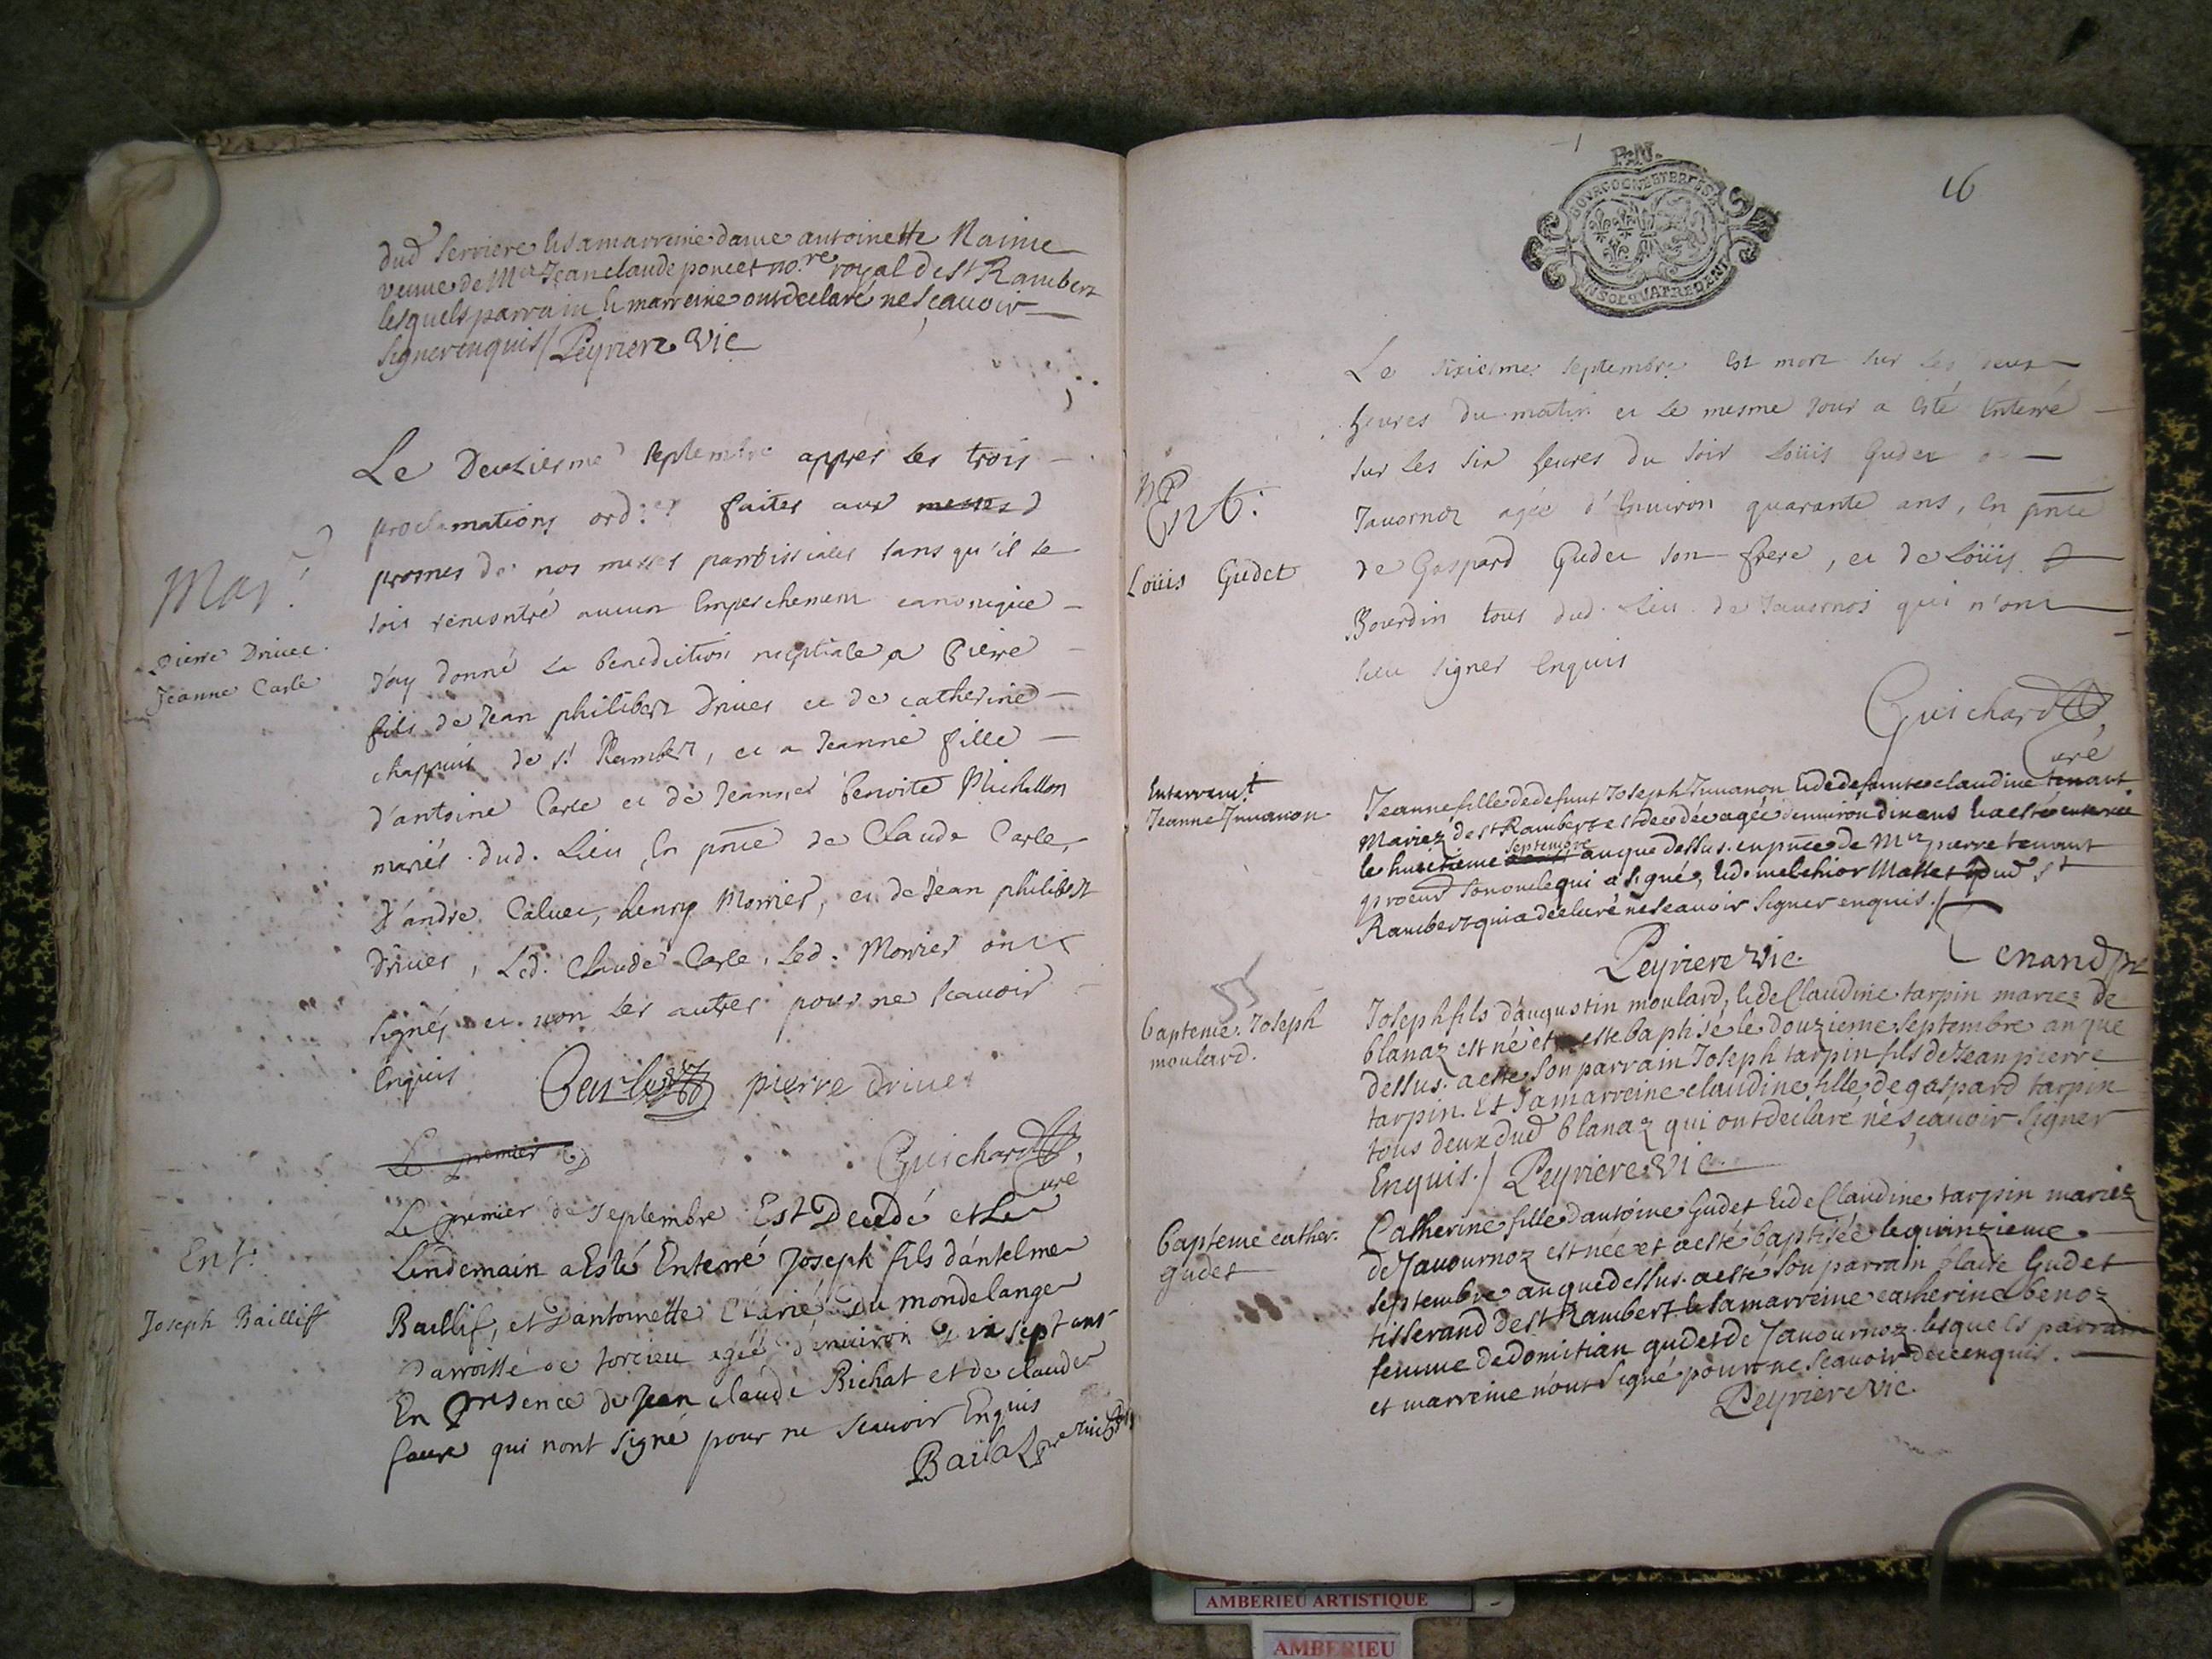 dud serriere et sa marreine dame antoinette Rainie
veuue de Mre Jean claude poncet no.re royal de st Rambert
lesquels parrain et marreine ont declaré ne sçauoir
signer enquis / Peyriere Vic
Le Deuxiesme septembre appres les trois
proclamations ord.res faites aux messes
prosnes de nos messes parroissiales sans qu'il se
soit rencontré aucun Empeschement canonique
J'ay donné la benediction nuptiale a Pierre
fils de Jean philibert Driuet et de catherine
chappuis de st Rambert, et a Jeanne fille
d'antoine Carle et de Jeanne benoite Michallon
mariés dud. Lieu En pnce de Claude Carle,
d'andre Caluet, henry Monier, et de Jean philibert
Driuet, Led. Claude Carle, Led. Monier ont
signés et non les autres pour ne scauoir
Enquis
Mar.
Pierre Driuet.
Jeanne Carle
Carle pierre driuet
Le premier
Guichard
Curé
Le premier de septembre Est Decedé et Le
Lendemain a Esté Enterré Joseph fils d'antelme
Baillif, et d'antoinette Clarié du mondelange
Parroisse de torcieu agée d'enuiron dix sept ans
En presence de Jean claude Bichat et de claude
faure qui nont signé pour ne scauoir Enquis
Ent.
Joseph Bailliff
Bailat
P.N.
BOURGOGNE ET BRESSE
UN SOL QUATRE DEN.
16
Le sixiesme septembre Est mort sur les deux
heures du matin et le mesme jour a esté Enterré
sur les six heures du soir Loüis Gudet de
Jauornoz agée d'Enuiron quarante ans, En pnce
de Gaspard Gudet son frere, et de Loüis
Bourdin tous dud. Lieu de Jauornos qui n'ont
sceu signer Enquis
Ent.
Loüis Gudet
Guichard
Curé
Enterremt
Jeanne Juuanon
Jeanne fille de defunt Joseph Juuanon et de defunte claudine tenant
Mariez de st Rambert est decedée agée denuiron dix ans et a esté enterrée
le huictieme septembre an que dessus. en pnce de Mre pierre tenant
procur son oncle qui a signé, et d. melchior Mattet dud st
Rambert qui a declaré ne scauoir signer enquis. /
Peyriere Vic. Tenand
bapteme. Joseph
moulard.
Joseph fils d'augustin moulard, et de Claudine tarpin mariez de
blanaz est né et este baptisé le douzieme septembre an que
dessus. a esté son parrain Joseph tarpin fils de Jean pierre
tarpin. et sa marreine claudine fille de gaspard tarpin
tous deux dud blanaz qui ont declaré ne sçauoir signer
Enquis. / Peyriere Vic
bapteme cather.
gudet
Catherine fille d'antoine Gudet et de Claudine tarpin mariez
de Jauournoz est née et a esté baptisée le quinzieme
septembre an que dessus. a esté son parrain blaise Gudet
tisserand de st Rambert et sa marreine catherine benoz
femme de domitian gudet de Jauournoz. lesquels parrain
et marreine n'ont signé pour ne scauoir de ce enquis.
Peyriere Vic.
AMBERIEU ARTISTIQUE
AMBERIEU